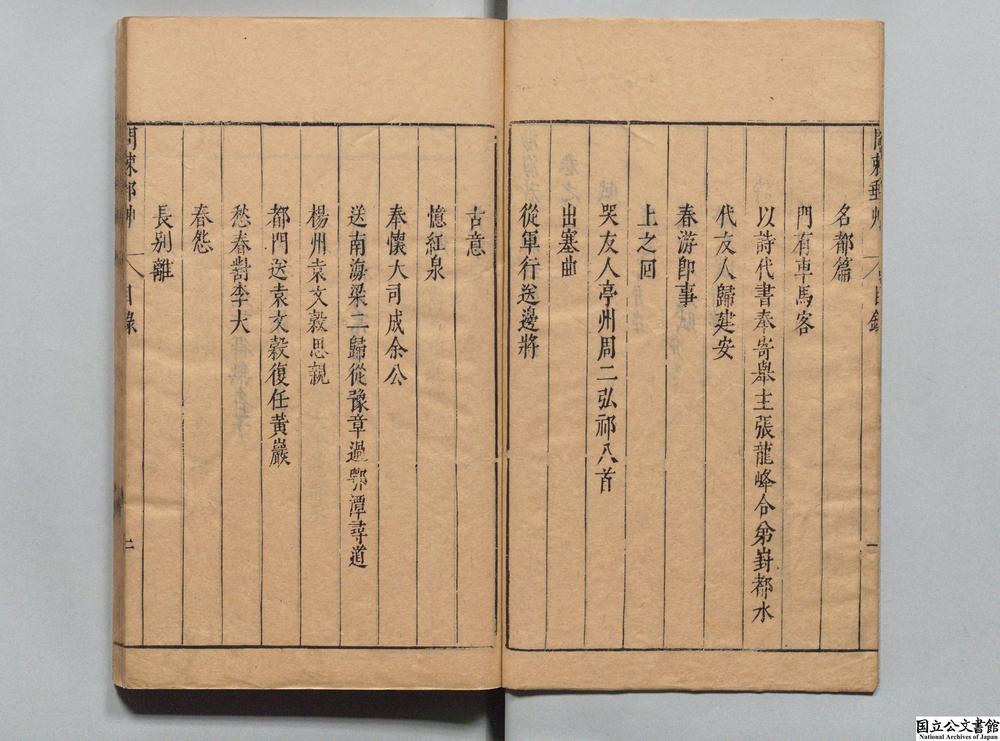 名都篇
門有車馬客
以詩代書奉寄舉主張龍峰合劵葑都水
代友人歸建安
春游卽事
上之回
哭友人亭州周二弘祁八首
出塞曲
從軍行送邊將
古意
憶紅泉
奉懷大司成余公
送南海梁二歸從豫章過鄂潭尋道
楊州袁文縠思親
都門送袁文縠復任黃巖
愁春對李大
春怨
長別離
目錄
二
国立公文書館
National Archives of Japan